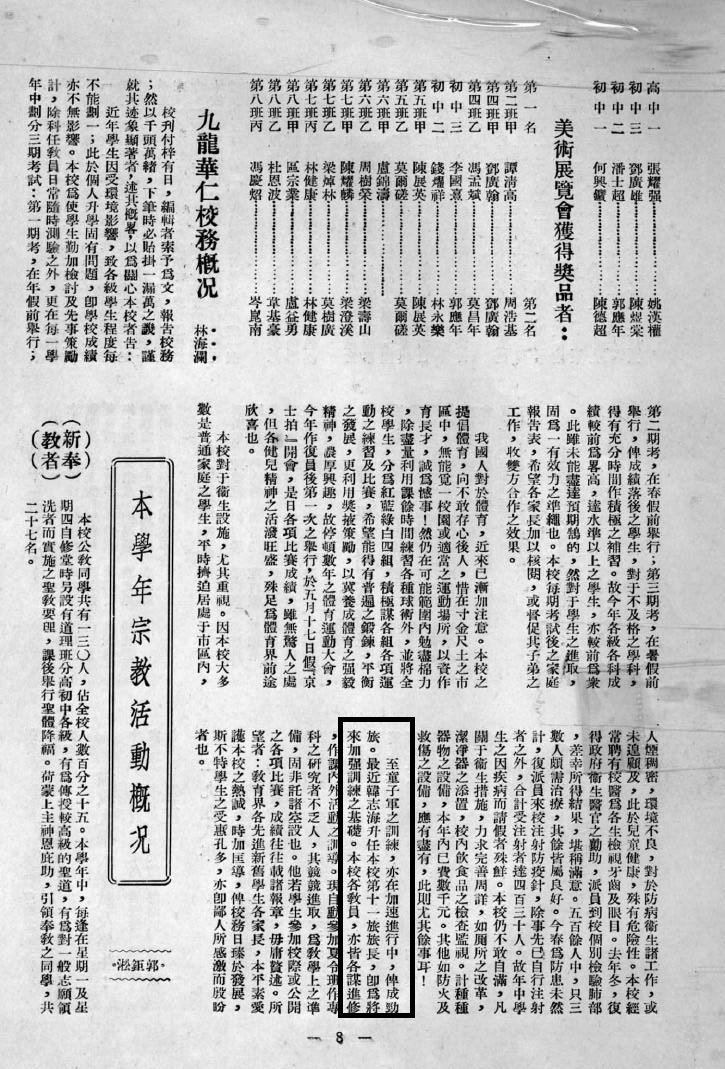 高中一 張耀强………………姚漢權
初中三 鄧廣雄………………陳煜棠
初中二 潘士超………………郭應年
初中一 何興鑣………………陳德超
美術展覽會獲得獎品者：
第一名 第二名
第二班甲 譚清高………………周浩基
第四班甲 鄧廣翰………………鄧廣翰
第四班乙 馮孟斌………………莫昌年
初中三 李國熹………………郭應年
初中二 錢燿祥………………林永樂
第五班甲 陳展英………………陳展英
第五班乙 莫爾磋………………莫爾磋
第六班甲 盧錦濤………………
第六班乙 周樹榮………………梁壽山
第七班甲 陳燿麟………………梁澄溪
第七班乙 梁焯林………………莫樹廣
第七班丙 林健康………………林健康
第八班甲 區宗業………………盧益勇
第八班乙 杜恩波………………韋基豪
第八班丙 馮慶炤………………岑崑南
九龍華仁校務槪况 林海瀾
校刊付梓有日，編輯者索予爲文，報告校務
；然以千頭萬緒，下筆時必貽掛一漏萬之譏，謹
就其迹象顯著者，述其概畧，以爲關心本校者告：
近年學生因受環境影響，致各級學生程度每
不能劃一；此於個人升學固有問題，卽學校成績
亦不無影響。本校爲使學生勤加檢討及先事策勵
計，除科任教員日常隨時測驗之外，更在每一學
年中劃分三期考試：第一期考，在年假前舉行；
第二期考，在春假前舉行；第三期考，在暑假前
舉行，俾成績落後之學生，對于不及格之學科，
得有充分時間作積極之補習。故今年各級各科成
績較前爲畧高，達水準以上之學生，亦較前爲衆
。此雖未能盡達預期鵠的，然對于學生之進取，
固爲一有效力之準繩也。本校每期考試後之家庭
報告表，希望各家長加以核閱，或督促其子弟之
工作，收雙方合作之效果。
我國人對於體育，近來已漸加注意。本校之
提倡體育，向不敢存心後人，惜在寸金尺土之市
區中，無能覓一校園或適當之運動場所，以資作
育長才，誠爲憾事！然仍在可能範圍內勉盡綿力
，除盡量利用課餘時間練習各種球術外，並將全
校學生，分爲紅藍綠白四組，積極謀各組各項運
動之練習及比賽，希望能得有普遍之鍛鍊，平衡
之發展，更利用獎掖策勵，以冀養成體育之强毅
精神，濃厚興趣，故停頓數年之體育運動大會，
今年作復員後第一次之舉行，於五月十七日假「京
士拍」開會，是日各項比賽成績，雖無驚人之處
，但各健兒精神之活潑旺盛，殊足爲體育界前途
欣喜也。
本校對于衞生設施，尤其重視。因本校大多
數是普通家庭之學生，平時擠迫居處于市區內，
人煙稠密，環境不良，對於防病衞生諸工作，或
未遑顧及，此於兒童健康，殊有危險性。本校經
常聘有校醫爲各生檢視牙齒及眼目。去年冬，復
得政府衞生醫官之勷助，派員到校個別檢驗肺部
，差幸所得結果，堪稱滿意。五百餘人中，只三
數人頗需治療，其餘皆屬良好。今春爲防患未然
計，復派員來校注射防疫針，除事先已自行注射
者之外，合計受注射者達四百三十人。故年中學
生之因疾病而請假者殊鮮。本校仍不敢自滿，凡
關于衞生措施，力求完善周詳，如厠所之改革，
潔淨器之添置，校內飲食品之檢查監視。計種種
器物之設備，本年內已費數千元。其他如防火及
救傷之設備，應有盡有，此則尤其餘事耳！
至童子軍之訓練，亦在加速進行中，俾成勁
旅。最近韓志海升任本校第十一旅旅長，卽爲將
來加强訓練之基礎。本校各敎員，亦皆各謀進修
，作課內外活動之訓導。現自動參加夏令班作專
科之硏究者不乏人，其競競進取，爲敎學上之準
備，固非託諸空設也。他若學生參加校際或公開
之各項比賽，成績往往載諸報章，毋庸贅述。所
望者：敎育界各先進新舊學生各家長，本平素愛
護本校之熱誠，時加匡導，俾校務日臻於發展，
斯不特學生之受惠孔多，亦卽鄙人所感激而殷盼
者也。
本學年宗教活動概况
郭鉅淞
本校公敎同學共有一三〇人，佔全校人數百分之十五。本學年中，每逢在星期一及星
期四自修堂時另設有道理班分高初中各級，有爲傳授較高級的聖道，有爲對一般志願領
洗者而實施之聖敎要理，課後舉行聖體降福。荷蒙上主神恩庇助，引領奉敎之同學，共
二十七名。
（新奉）
（敎者）
— 8 —